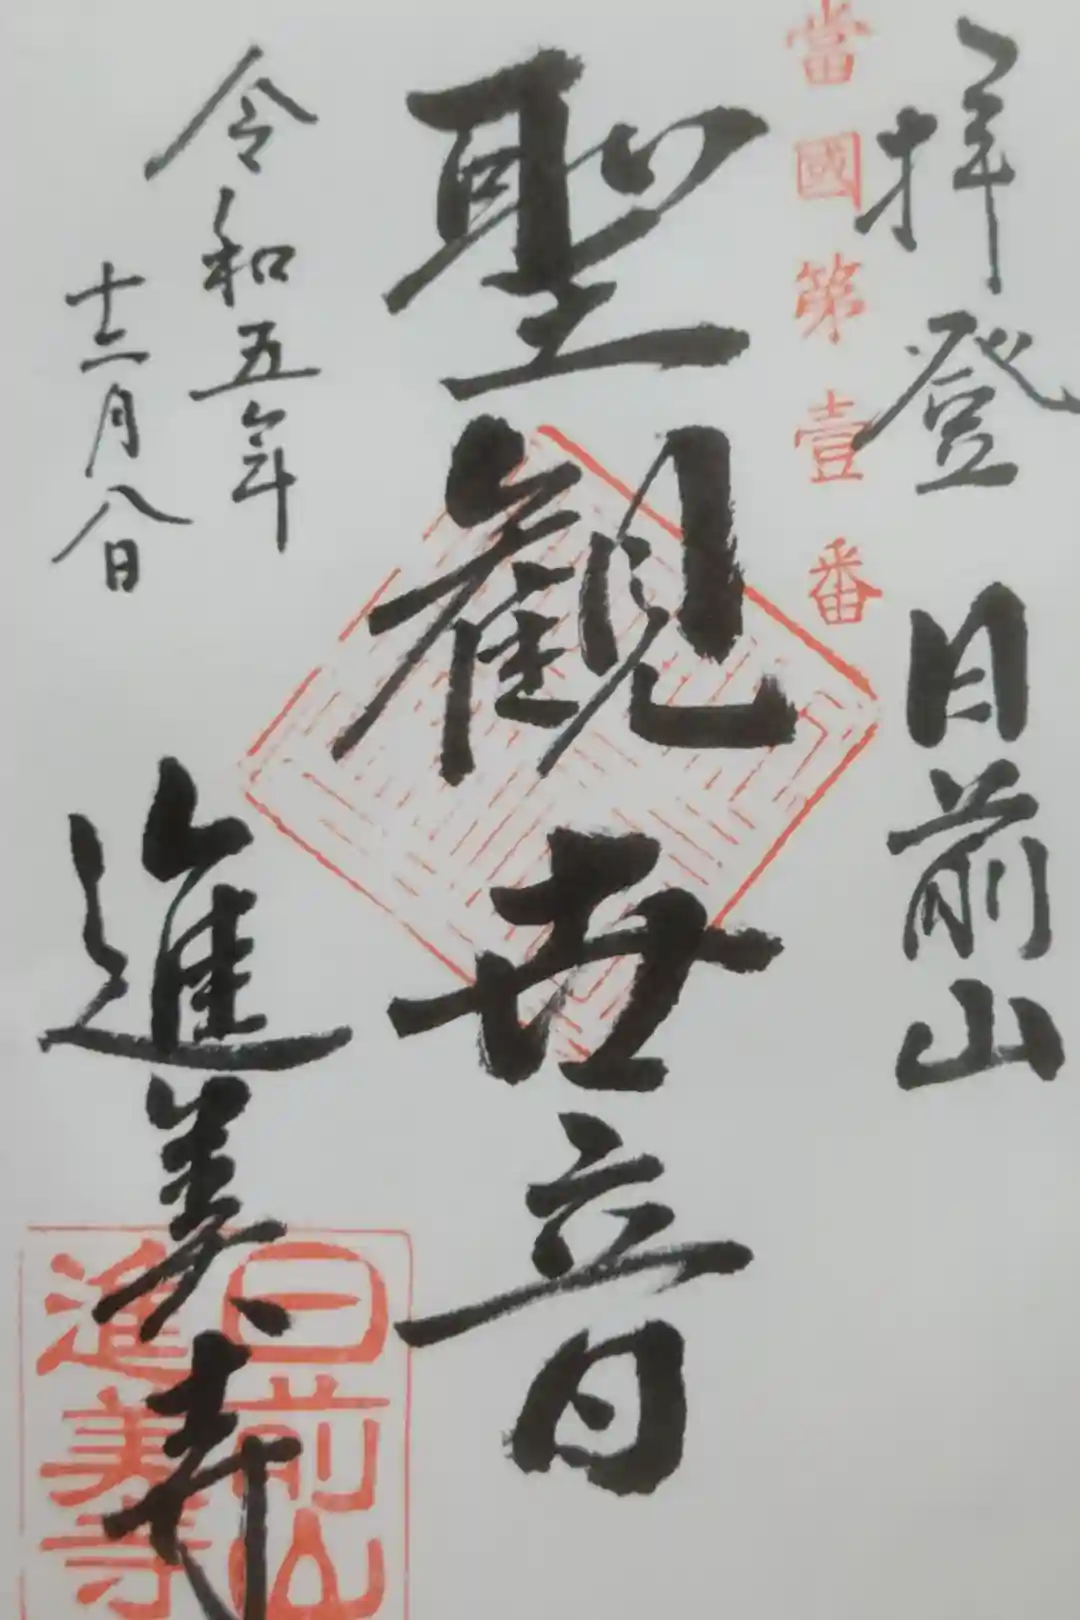 拝登 日前山
當國第壹番
聖観世音
令和五年
十二月八日
進美寺
日前山
進美寺